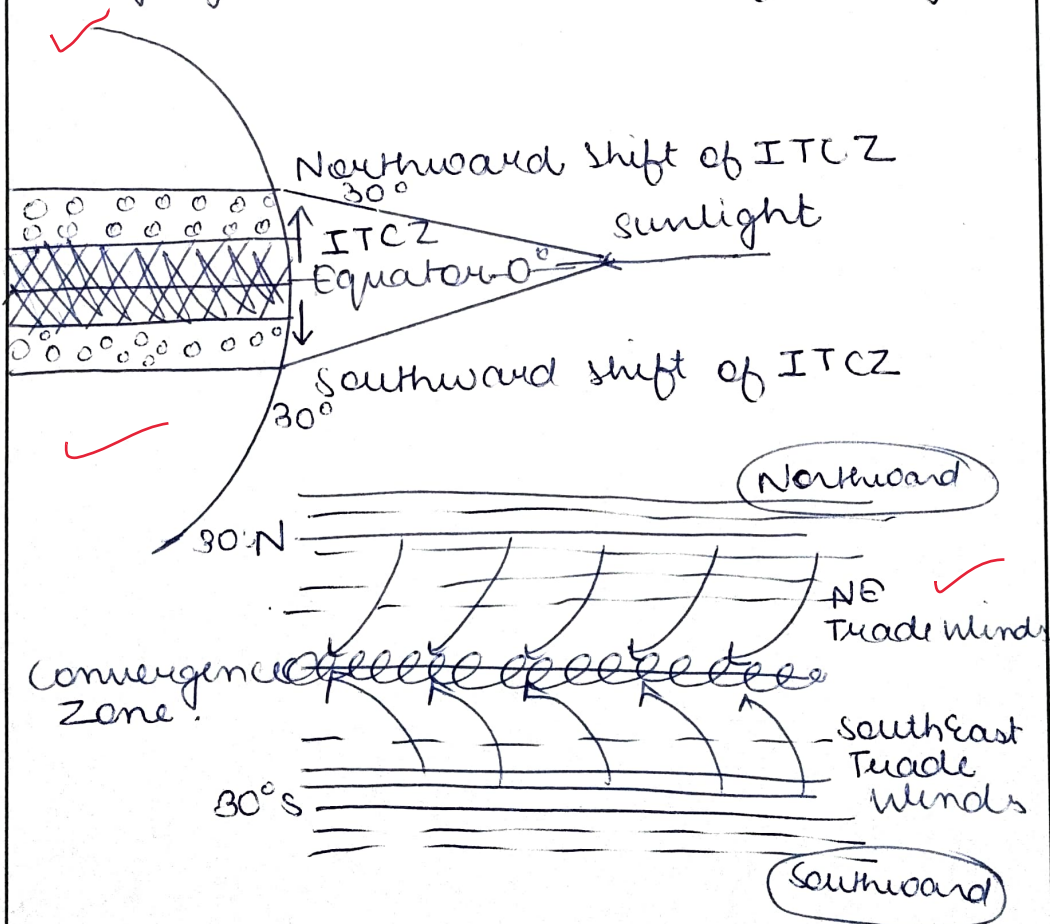 Northward shift of ITCZ
30°
sunlight
ITCZ
Equator 0°
Southward shift of ITCZ
30°
Northward
30°N
NE
Trade Winds
Convergence
Zone.
SouthEast
Trade
Winds
30°S
Southward